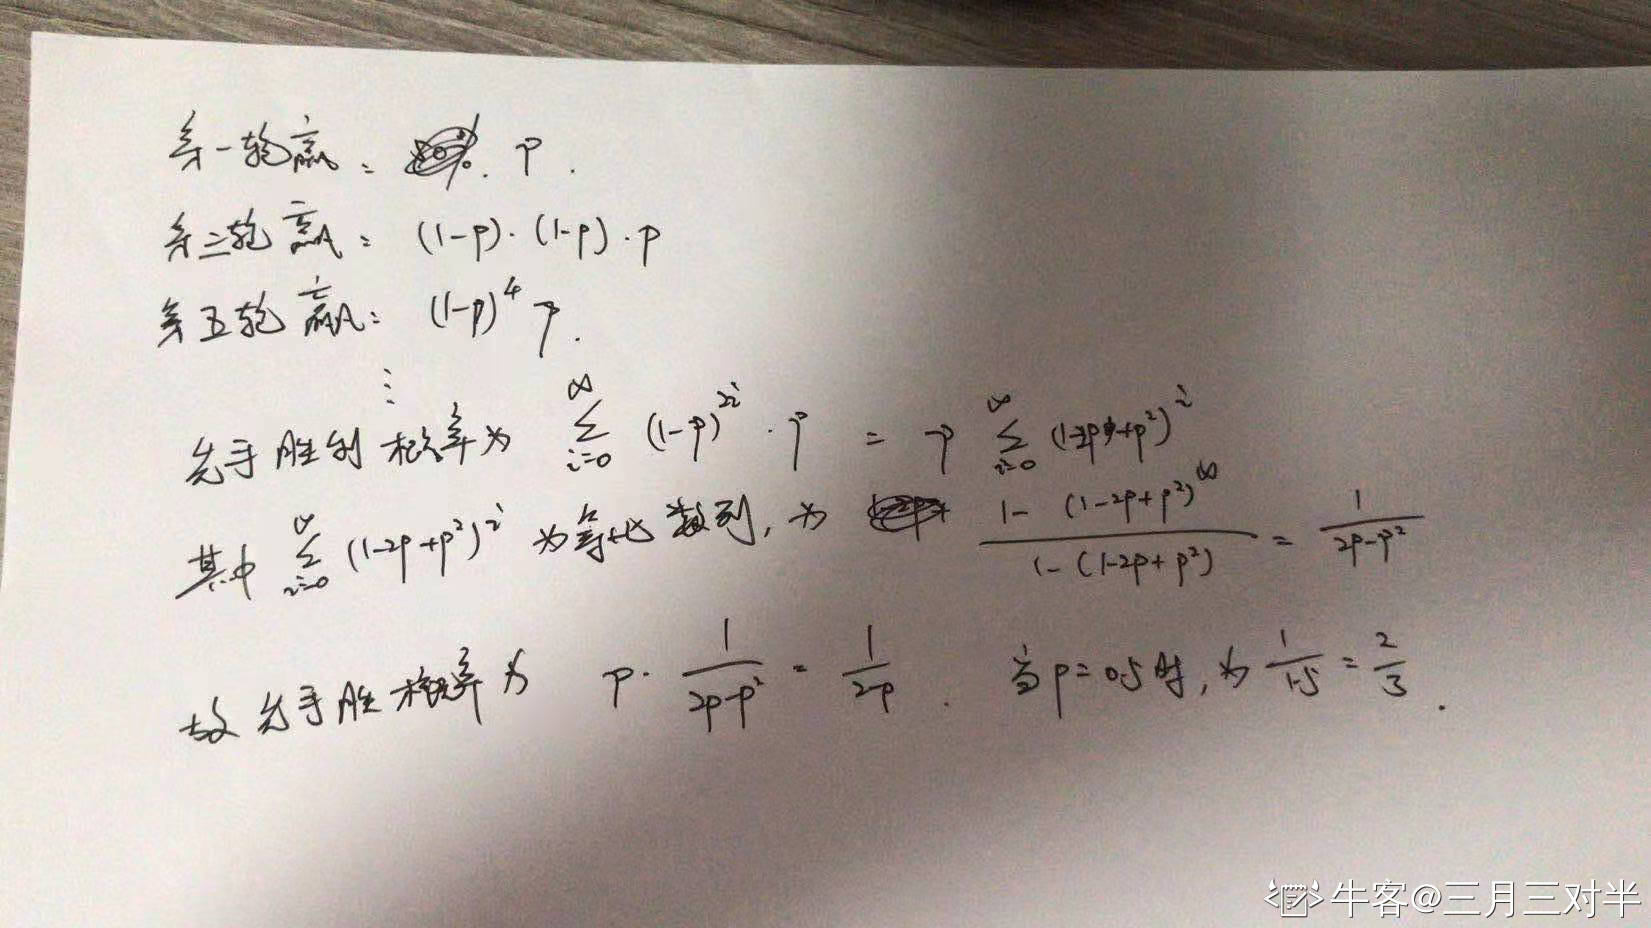 第一轮赢: p.
第三轮赢: (1-p)·(1-p)·p
第五轮赢: (1-p)^4 p.
⋮
先手胜利概率为 ∑_{i=0}^{∞} (1-p)^{2i} · p = p ∑_{i=0}^{∞} (1-2p+p²)^i
其中 ∑_{i=0}^{∞} (1-2p+p²)^i 为等比数列, 为 \frac{1-(1-2p+p²)^∞}{1-(1-2p+p²)} = \frac{1}{2p-p²}
故先手胜概率为 p· \frac{1}{2p-p²} = \frac{1}{2-p}. 当p=0.5时, 为 \frac{1}{1.5} = \frac{2}{3}.
牛客@三月三对半